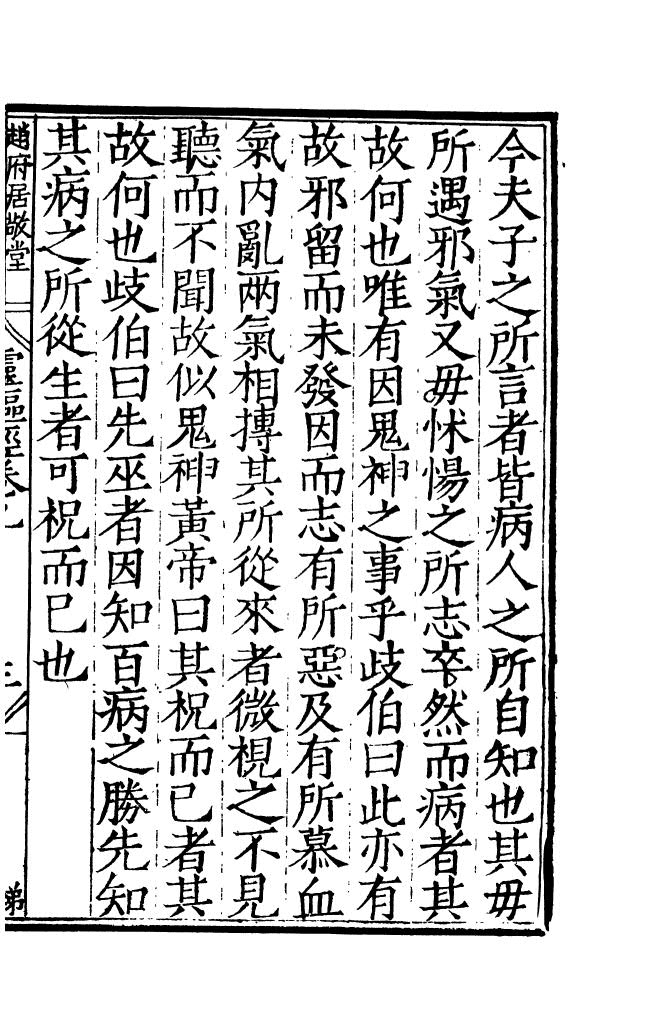 今夫子之所言者皆病人之所自知也其毋
所遇邪氣又毋怵惕之所志卒然而病者其
故何也唯有因鬼神之事乎歧伯曰此亦有
故邪留而未發因而志有所惡及有所慕血
氣内亂兩氣相摶其所從來者微視之不見
聽而不聞故似鬼神黃帝曰其祝而已者其
故何也歧伯曰先巫者因知百病之勝先知
其病之所從生者可祝而已也
趙府居敬堂
靈樞經卷之